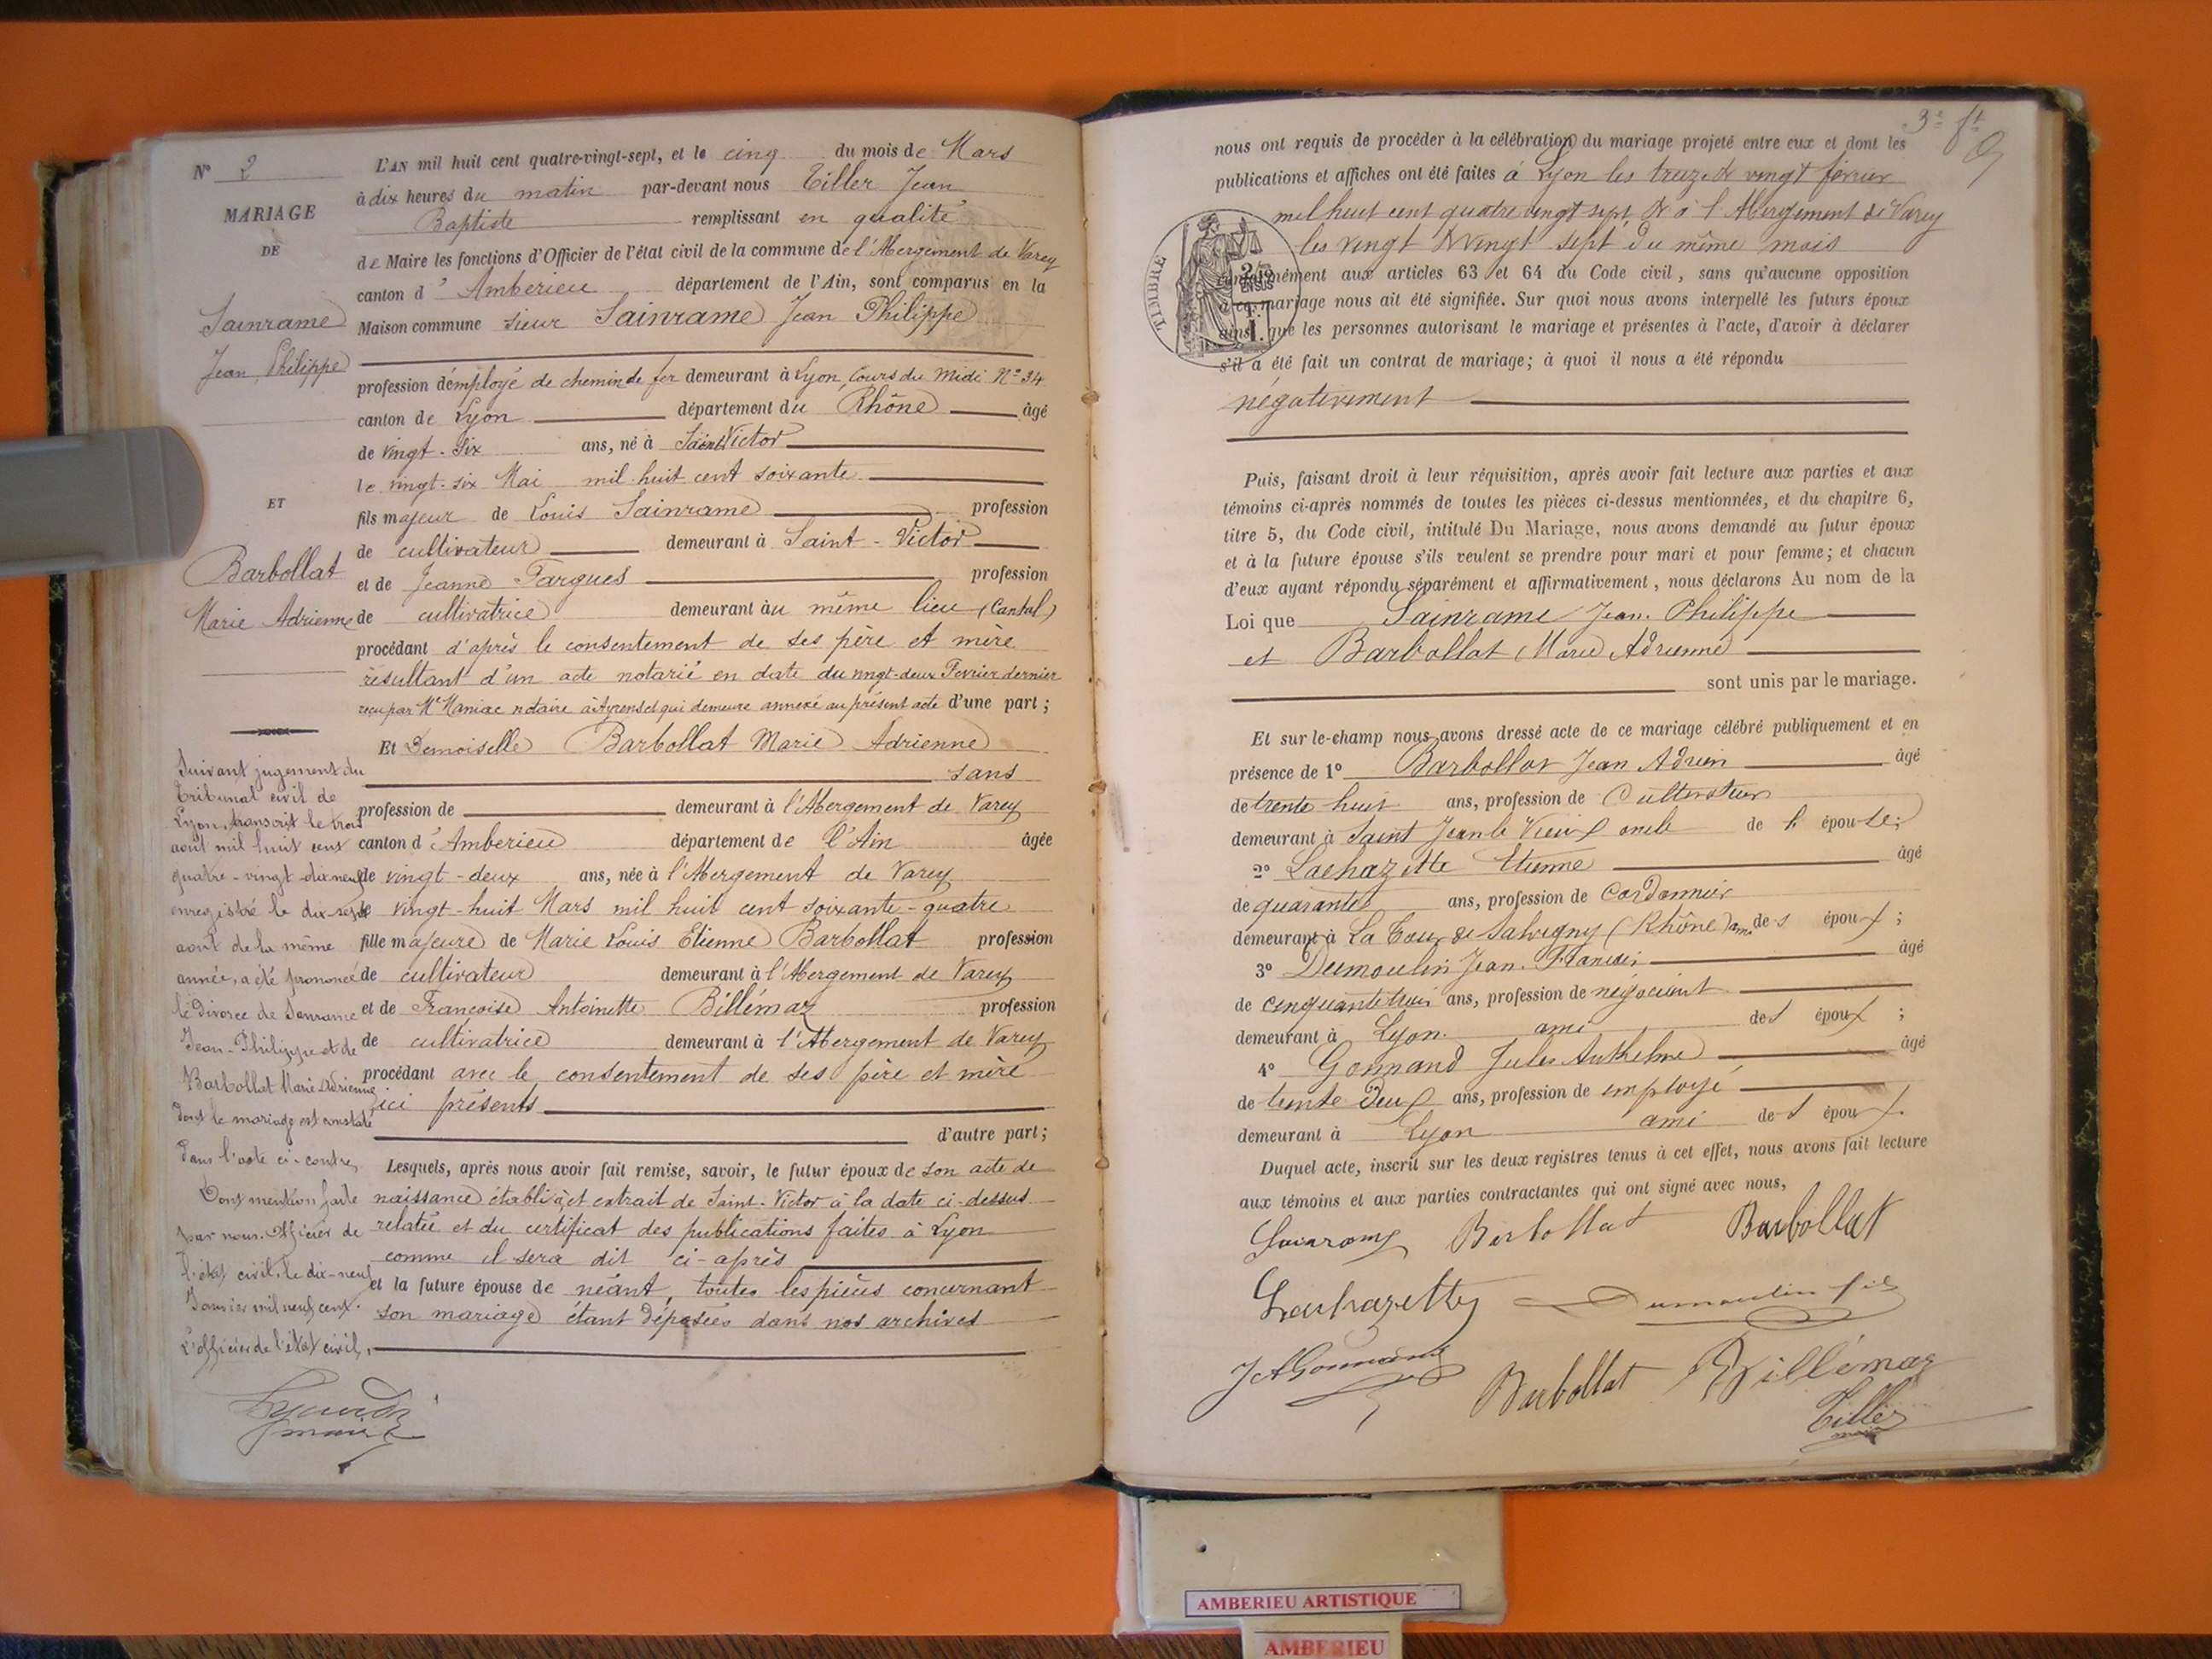 N° 2
MARIAGE
DE
Sainrame
Jean Philippe
ET
Barbollat
Marie Adrienne
Suivant jugement du
tribunal civil de
Lyon, transcrit le trois
août mil huit cent
quatre-vingt-dix-neuf
enregistré le dix-sept
août de la même
année, a été prononcé
le divorce de Sainrame
Jean-Philippe et de
Barbollat Marie Adrienne
dont le mariage est constaté
dans l'acte ci-contre,
Dont mention faite
par nous, Officier de
l'état civil, le dix-neuf
Janvier mil neuf cent.
L'officier de l'état civil,
L'AN mil huit cent quatre-vingt-sept, et le cinq du mois de Mars
à dix heures du matin par-devant nous Tiller Jean
Baptiste remplissant en qualité
de Maire les fonctions d'Officier de l'état civil de la commune de l'Abergement de Varey
canton d'Ambérieu département de l'Ain, sont comparus en la
Maison commune sieur Sainrame Jean Philippe
profession d'employé de chemin de fer demeurant à Lyon, Cours du Midi N° 34
canton de Lyon département du Rhône âgé
de vingt-six ans, né à Saint Victor
le vingt-six Mai mil huit cent soixante
fils majeur de Louis Sainrame profession
de cultivateur demeurant à Saint-Victor
et de Jeanne Fargues profession
de cultivatrice demeurant au même lieu (Cantal)
procédant d'après le consentement de ses père et mère
résultant d'un acte notarié en date du vingt-deux Fevrier dernier
reçu par Me Maniac notaire à Ayrens et qui demeure annexé au présent acte d'une part ;
Et Demoiselle Barbollat Marie Adrienne
sans
profession de demeurant à l'Abergement de Varey
canton d'Ambérieu département de l'Ain âgée
de vingt-deux ans, née à l'Abergement de Varey
le vingt-huit Mars mil huit cent soixante-quatre
fille majeure de Marie Louis Etienne Barbollat profession
de cultivateur demeurant à l'Abergement de Varey
et de Françoise Antoinette Billémaz profession
de cultivatrice demeurant à l'Abergement de Varey
procédant avec le consentement de ses père et mère
ici présents
d'autre part ;
Lesquels, après nous avoir fait remise, savoir, le futur époux de son acte de
naissance établi et extrait de Saint-Victor à la date ci-dessus
relatée et du certificat des publications faites à Lyon
comme il sera dit ci-après
et la future épouse de néant, toutes les pièces concernant
son mariage étant déposées dans nos archives
3e ft
nous ont requis de procéder à la célébration du mariage projeté entre eux et dont les
publications et affiches ont été faites à Lyon les treize & vingt février
mil huit cent quatre vingt sept & à l'Abergement de Varey
les vingt & vingt sept du même mois
conformément aux articles 63 et 64 du Code civil, sans qu'aucune opposition
à ce mariage nous ait été signifiée. Sur quoi nous avons interpellé les futurs époux
ainsi que les personnes autorisant le mariage et présentes à l'acte, d'avoir à déclarer
s'il a été fait un contrat de mariage; à quoi il nous a été répondu
négativement
TIMBRE
Puis, faisant droit à leur réquisition, après avoir fait lecture aux parties et aux
témoins ci-après nommés de toutes les pièces ci-dessus mentionnées, et du chapitre 6,
titre 5, du Code civil, intitulé Du Mariage, nous avons demandé au futur époux
et à la future épouse s'ils veulent se prendre pour mari et pour femme; et chacun
d'eux ayant répondu séparément et affirmativement, nous déclarons Au nom de la
Loi que Sainrame Jean Philippe
et Barbollat Marie Adrienne
sont unis par le mariage.
Et sur-le-champ nous avons dressé acte de ce mariage célébré publiquement et en
présence de 1° Barbollat Jean Adrien âgé
de trente huit ans, profession de Cultivateur
demeurant à Saint Jean le Vieux oncle de l'épouse;
2° Lachazette Etienne âgé
de quarante ans, profession de Cordonnier
demeurant à La Tour de Salvagny (Rhône) ami de l'époux ;
3° Dumoulin Jean François âgé
de cinquante trois ans, profession de négociant
demeurant à Lyon ami de l'époux ;
4° Gonnand Jules Anthelme âgé
de trente deux ans, profession de employé
demeurant à Lyon ami de l'époux.
Duquel acte, inscrit sur les deux registres tenus à cet effet, nous avons fait lecture
aux témoins et aux parties contractantes qui ont signé avec nous,
Sainrame Barbollat Barbollat
Lachazette Dumoulin fils
JAGonnand Barbollat Billémaz
Tiller
AMBERIEU ARTISTIQUE
AMBERIEU